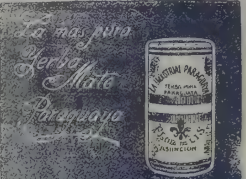 La mas pura
Yerba
Mate
Paraguaya
LA INDUSTRIAL PARAGUAYA
YERBA MATE
PARAGUAYA
FLOR DE LIS
ASUNCION